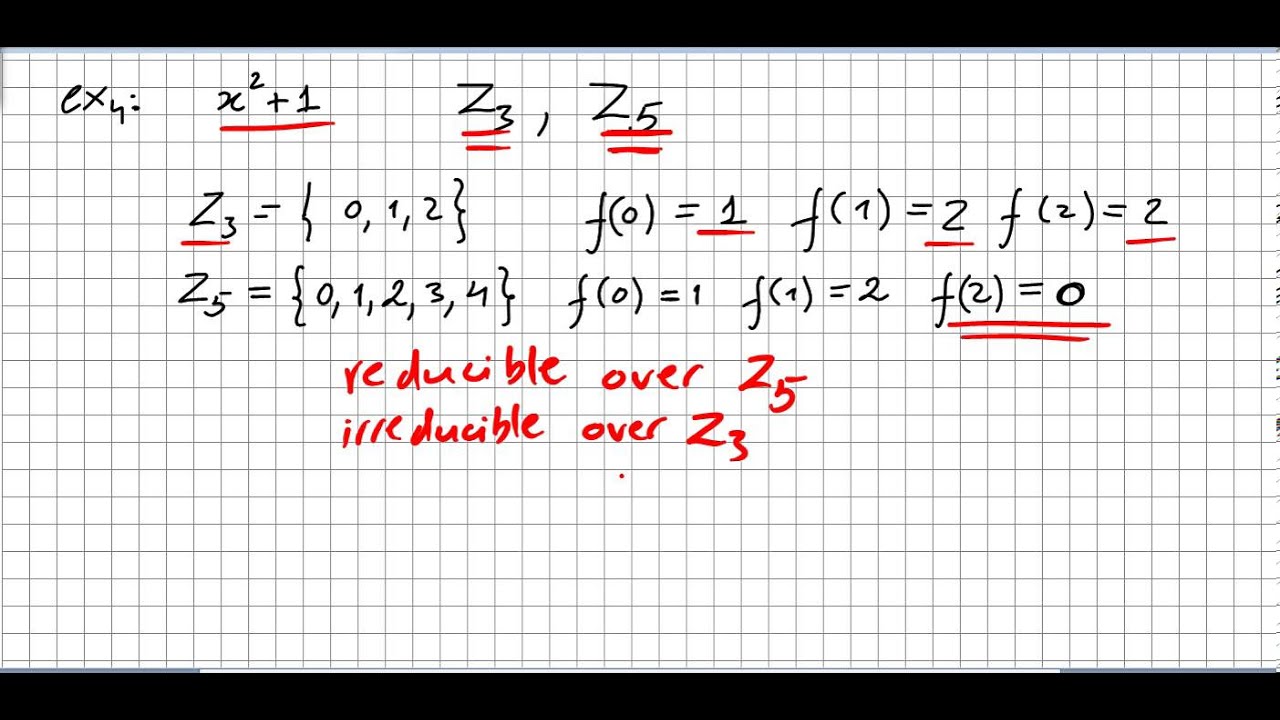 ex4: x² + 1 Z₃ , Z₅
Z₃ = { 0, 1, 2 } f(0) = 1 f(1) = 2 f(2) = 2
Z₅ = { 0, 1, 2, 3, 4 } f(0) = 1 f(1) = 2 f(2) = 0
reducible over Z₅
irreducible over Z₃